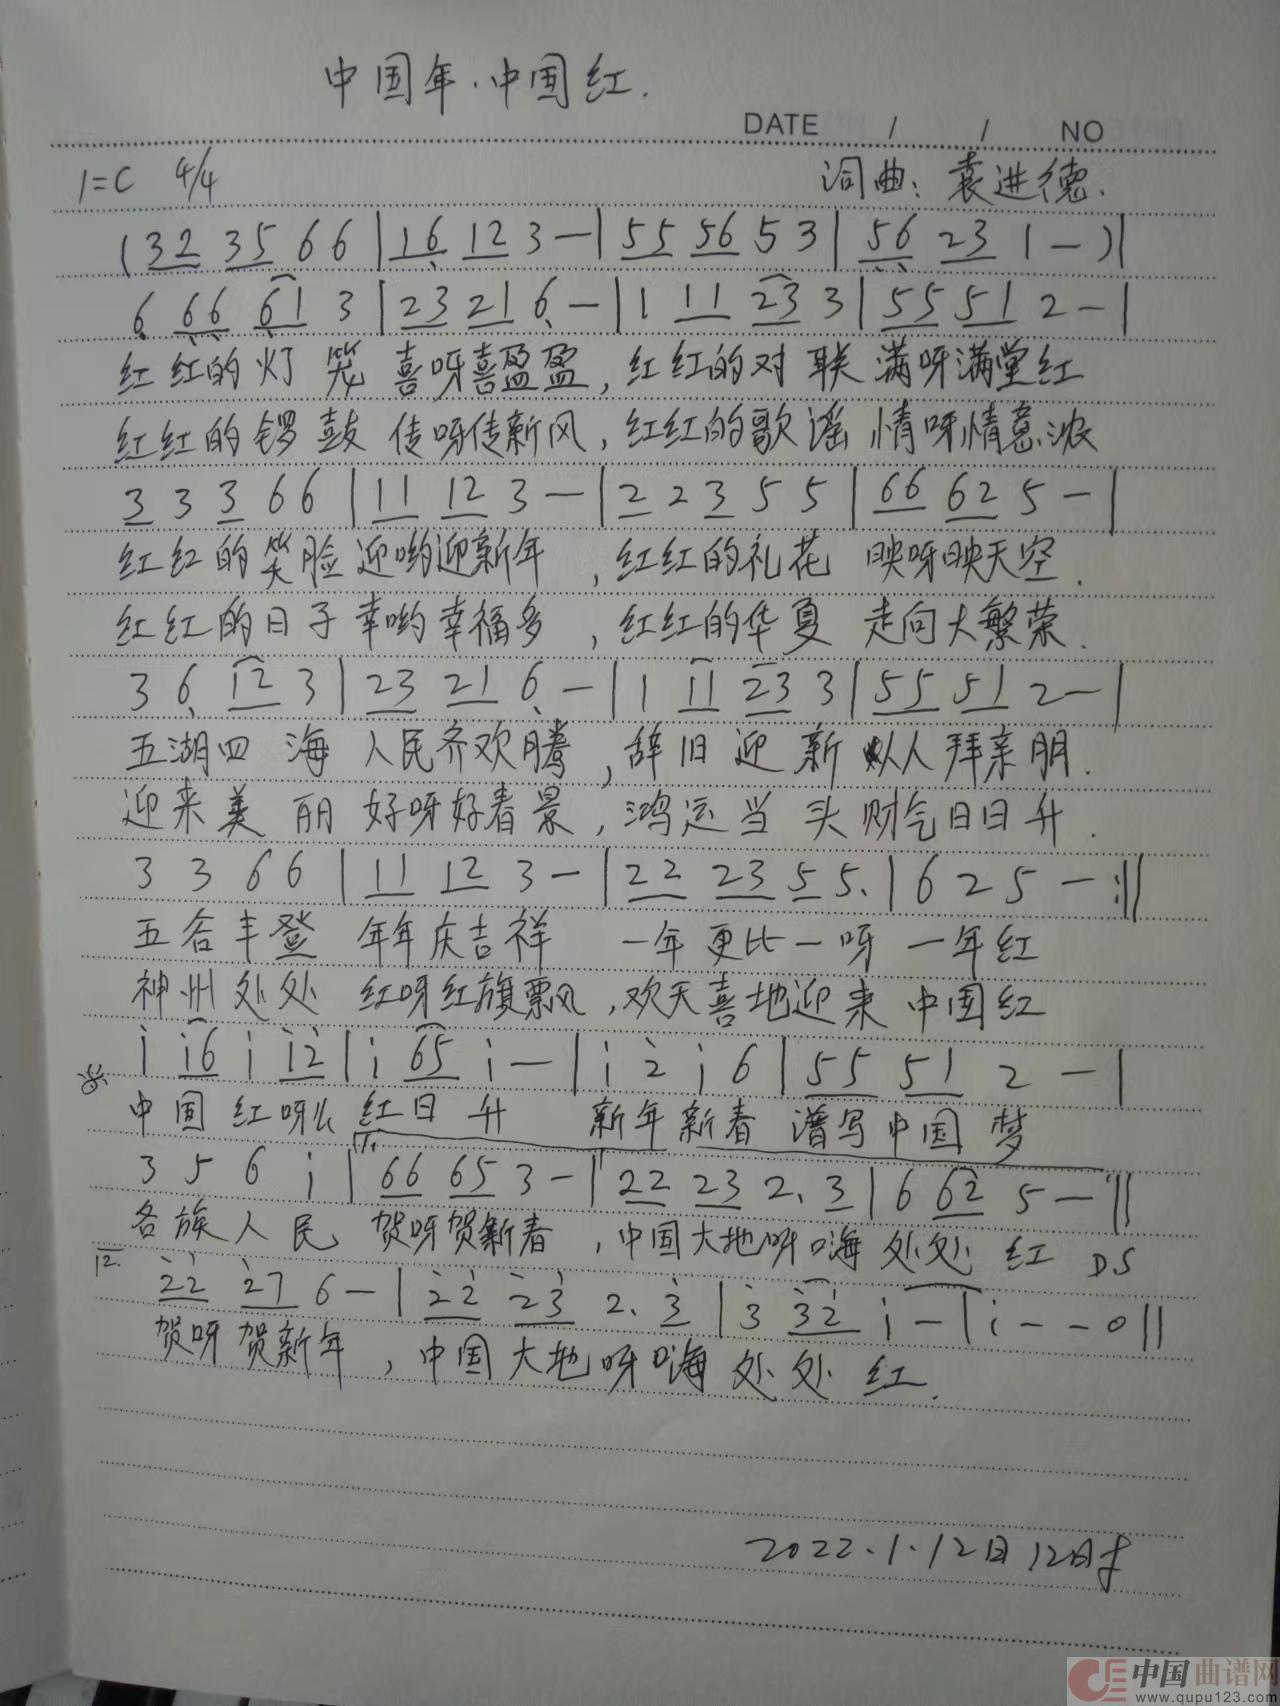 中国年·中国红.
DATE / / NO
1=C 4/4 词曲：袁进德.
(32 35 66|16 12 3—|55 56 53|56 23 1—)|
6 66 61 3|23 21 6—|1 11 23 3|55 51 2—|
红红的灯笼 喜呀喜盈盈，红红的对联 满呀满堂红
红红的锣鼓 传呀传新风，红红的歌谣 情呀情意浓
3 3 3 66|11 12 3—|2 2 3 5 5|66 62 5—|
红红的笑脸迎哟迎新年，红红的礼花 映呀映天空.
红红的日子幸哟幸福多，红红的华夏 走向大繁荣.
3 6 12 3|23 21 6—|1 11 23 3|55 51 2—|
五湖四海 人民齐欢腾，辞旧迎新 人拜亲朋.
迎来美丽 好呀好春景，鸿运当头 财气日日升.
3 3 6 6|11 12 3—|22 23 5 5.|6 2 5 —:||
五谷丰登 年年庆吉祥 一年更比一呀一年红
神州处处 红呀红旗飘，欢天喜地迎来 中国红
i i6 i i2|i 65 i—|i 2 i 6|55 51 2 —|
中国红呀么红日升 新年新春 谱写中国梦
1.
3 5 6 i|66 65 3—|22 23 2. 3|6 62 5—:||
各族人民 贺呀贺新春，中国大地呀嗨处处红 DS
2.
22 27 6—|22 23 2. 3|3 32 i—|i--0||
贺呀贺新年，中国大地呀嗨处处红.
2022.1.12日12时
中国曲谱网
www.qupu123.com